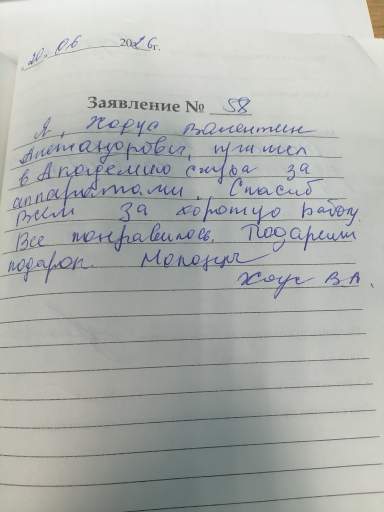 20. 06 2026г.
Заявление № 58
Я, Хорус Валентин
Александрович, пришел
в Академию слуха за
аппаратами. Спасиб
Всем за хорошую работу.
Все понравилось. Подарили
подарок. Молодцы
В.А.